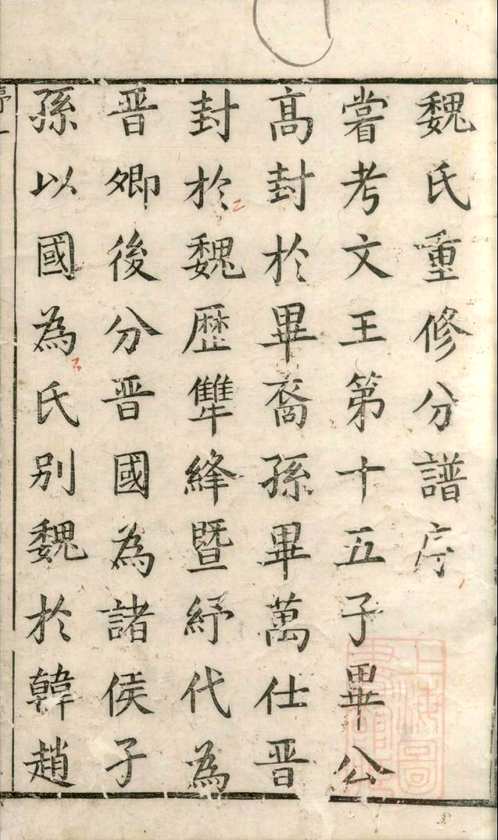 魏氏重修分譜序
嘗考文王第十五子畢公
高封於畢裔孫畢萬仕晋
封於魏歷犨絳暨紓代為
晋卿後分晋國為諸侯子
孫以國為氏别魏於韓趙